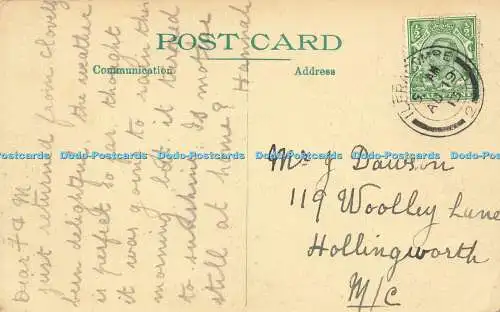 POST CARD
Communication
Address
Dear F & M
just returned from Clovelly
been delightful the weather
is perfect so far thought
it was going to rain this
morning but it turned
to sunshine Is mother
still at home? Hannah
Mr J Dawson
119 Woolley Lane
Hollingworth
M/C
ILFRACOMBE
Dodo-Postcards Dodo-Postcards Dodo-Postcards Dodo-Postcards Dodo-Postcards Dodo-Postcards